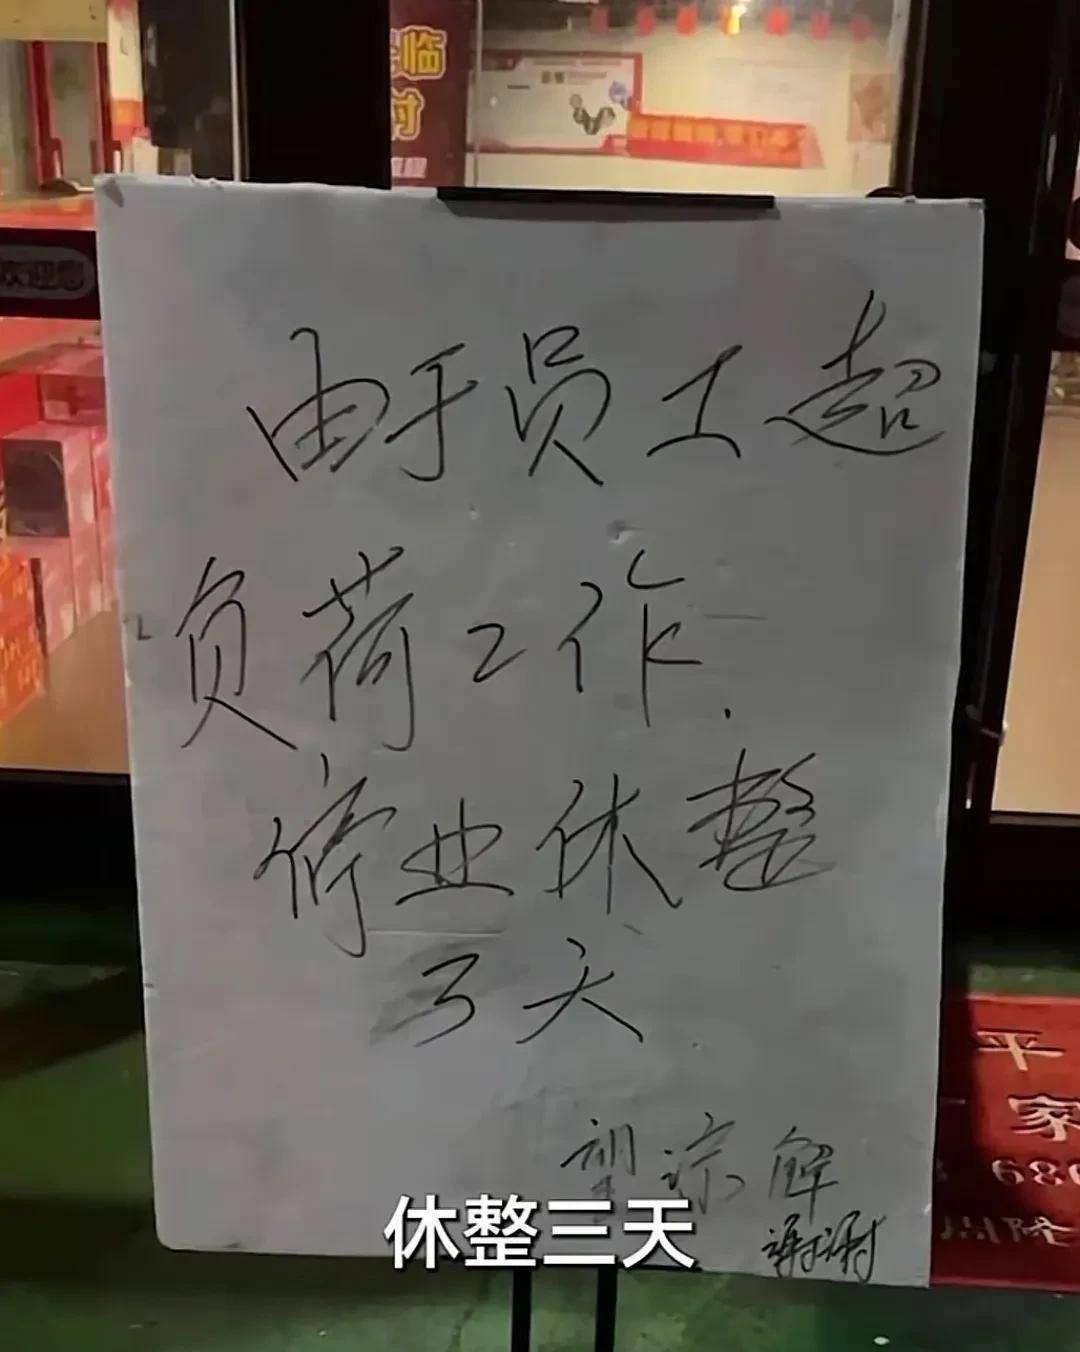 临
付
欢迎您
由于员工超
负荷工作.
停业休整
3天
望谅解
谢谢
休整三天
平
家
680